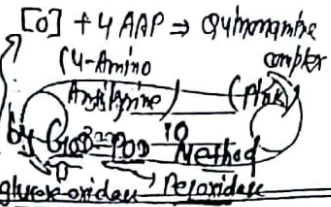 [O] + 4 AAP ⇒ Quinonamine
(4-Amino complex
Antipyrine) (Pink)
by God-POD Method
glucose oxidase Peroxidase